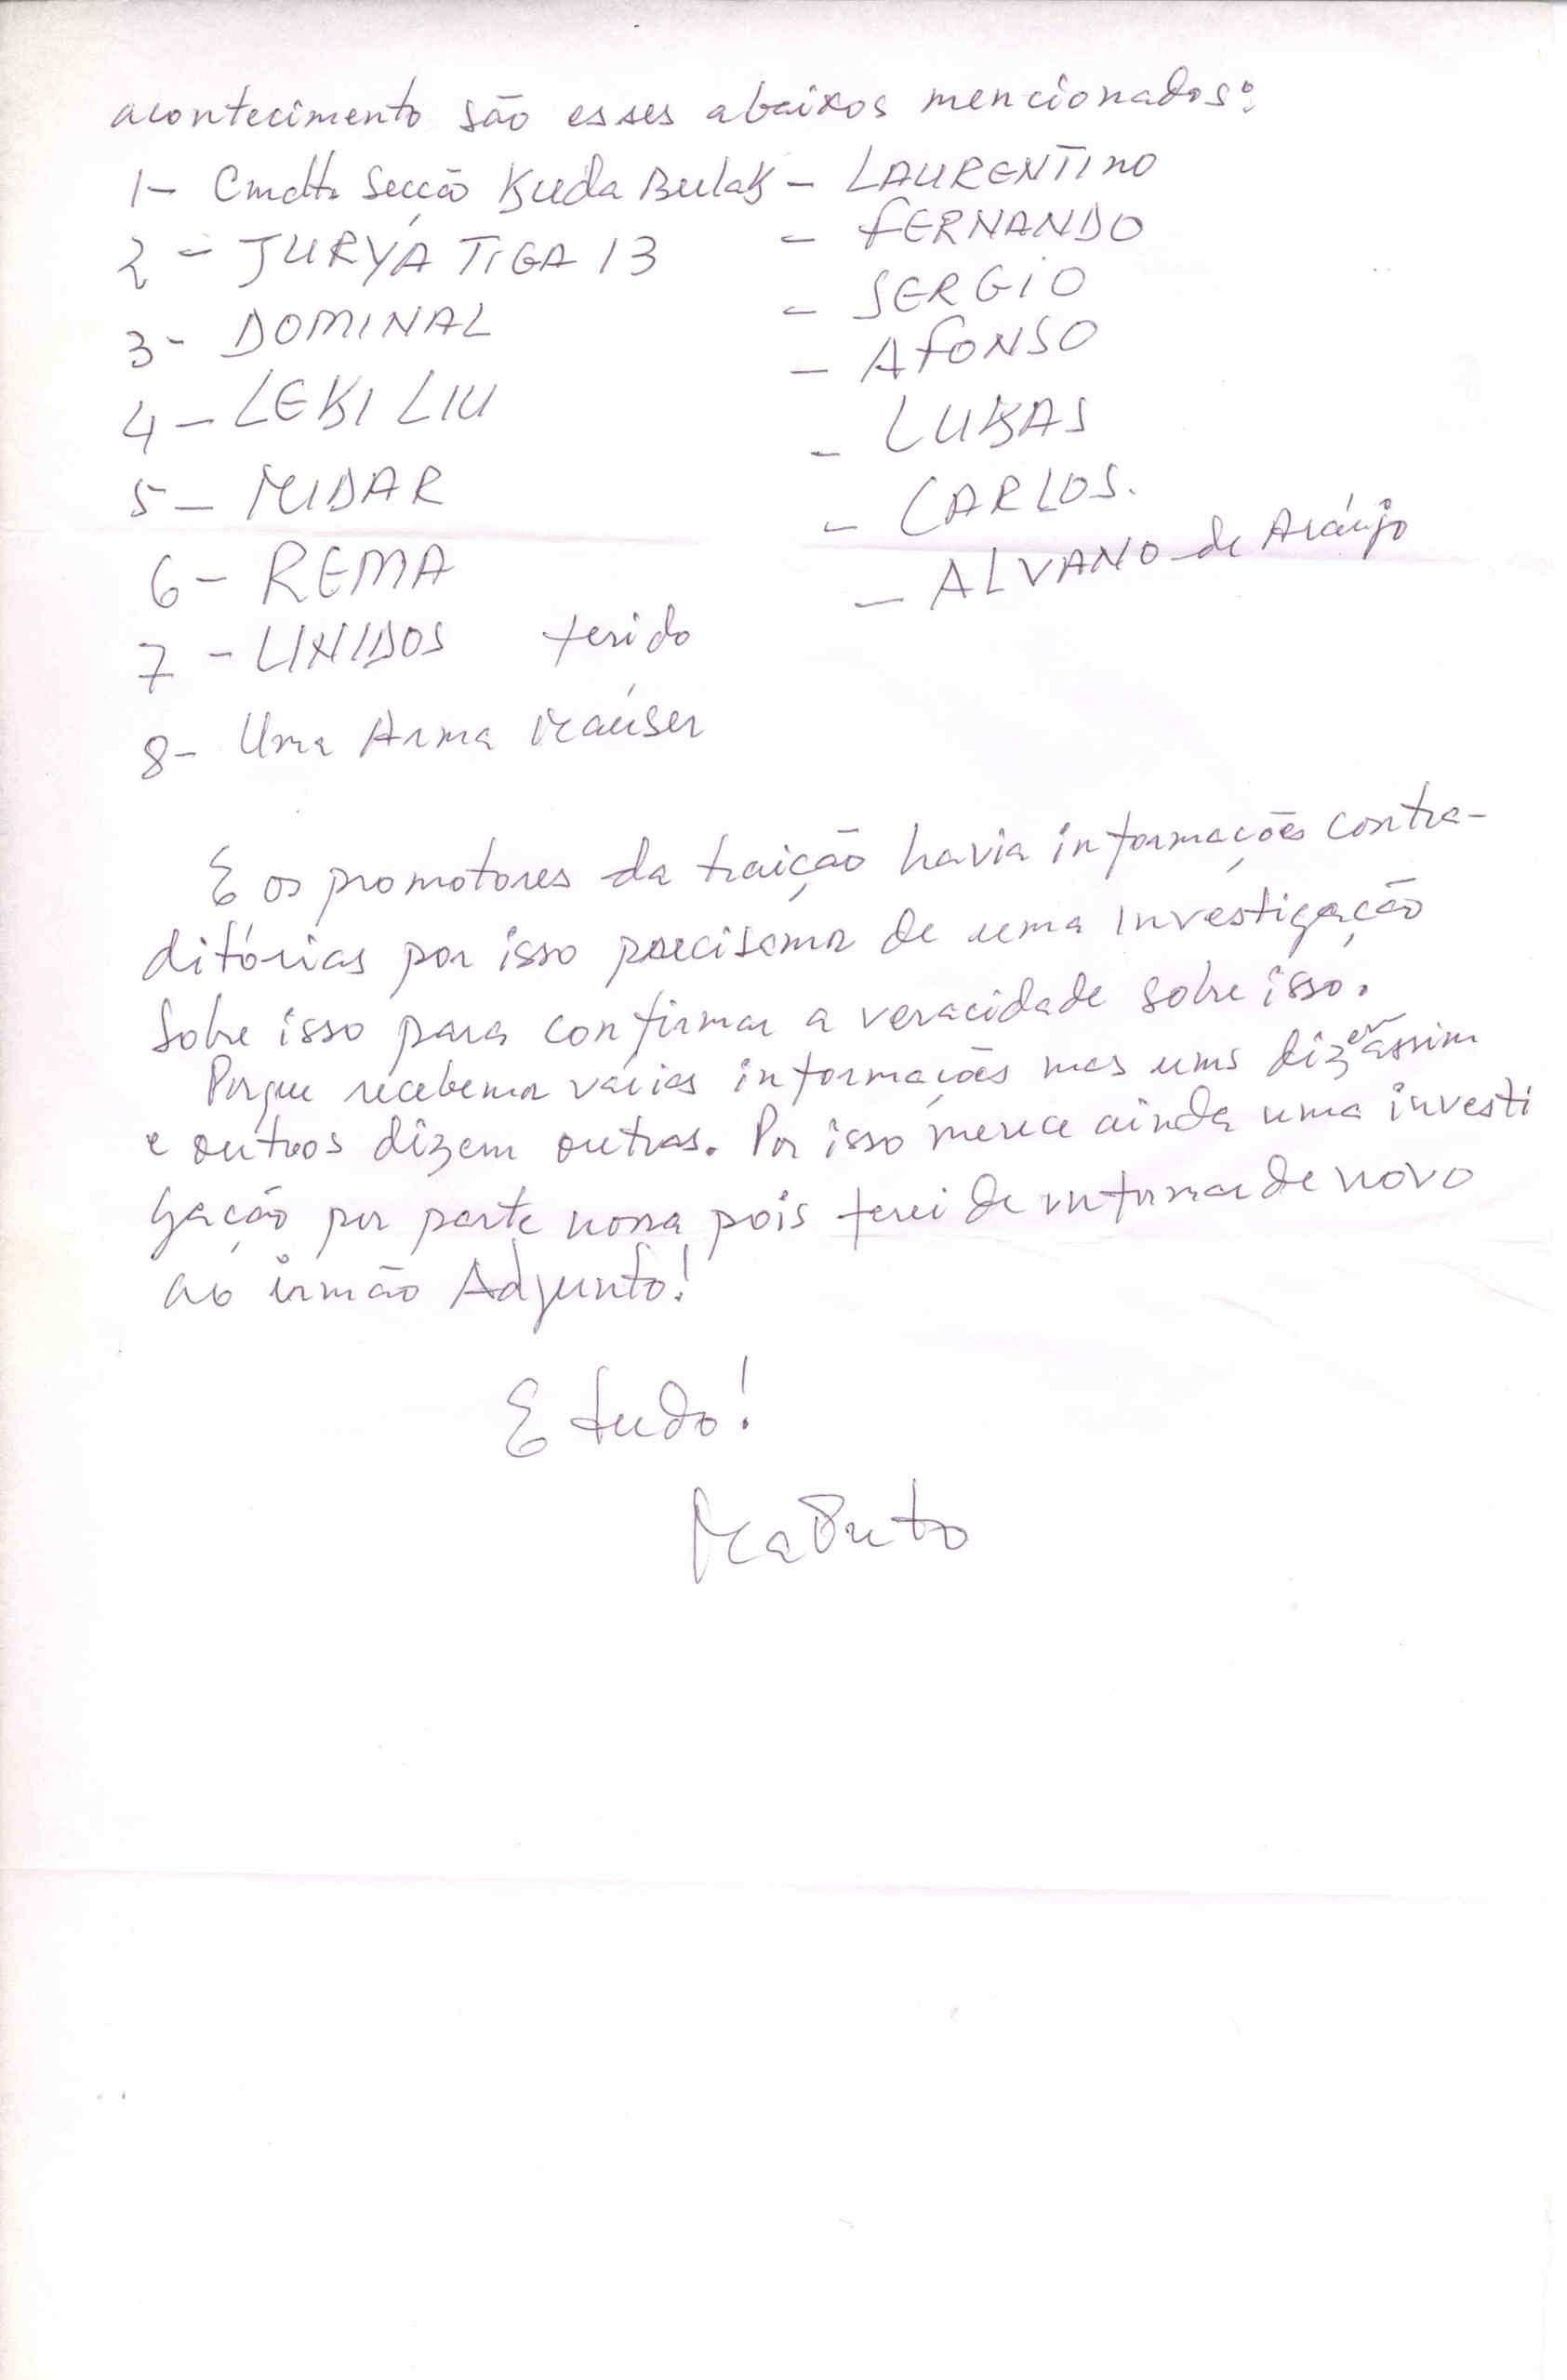 acontecimento são esses abaixos mencionados:
1- Cmdte Secção Kuda Bulak - LAURENTINO
2 - JURYÁ TIGA 13 - FERNANDO
3- DOMINAL - SERGIO
4 - LEKI LIU - AFONSO
5 - MIDAR - LUKAS
6 - REMA - CARLOS.
7 - UNIDOS ferido - ALVANO de Araújo
8- Uma Arma Maúser
E os promotores da traição havia informações contra-
ditórias por isso precisamos de uma investigação
Sobre isso para confirmar a veracidade sobre isso.
Porque recebemos várias informações mas ums dizem assim
e outros dizem outras. Por isso merece ainda uma investi
gação por parte nossa pois terei de informar de novo
ao irmão Adjunto!
E tudo!
Maduto